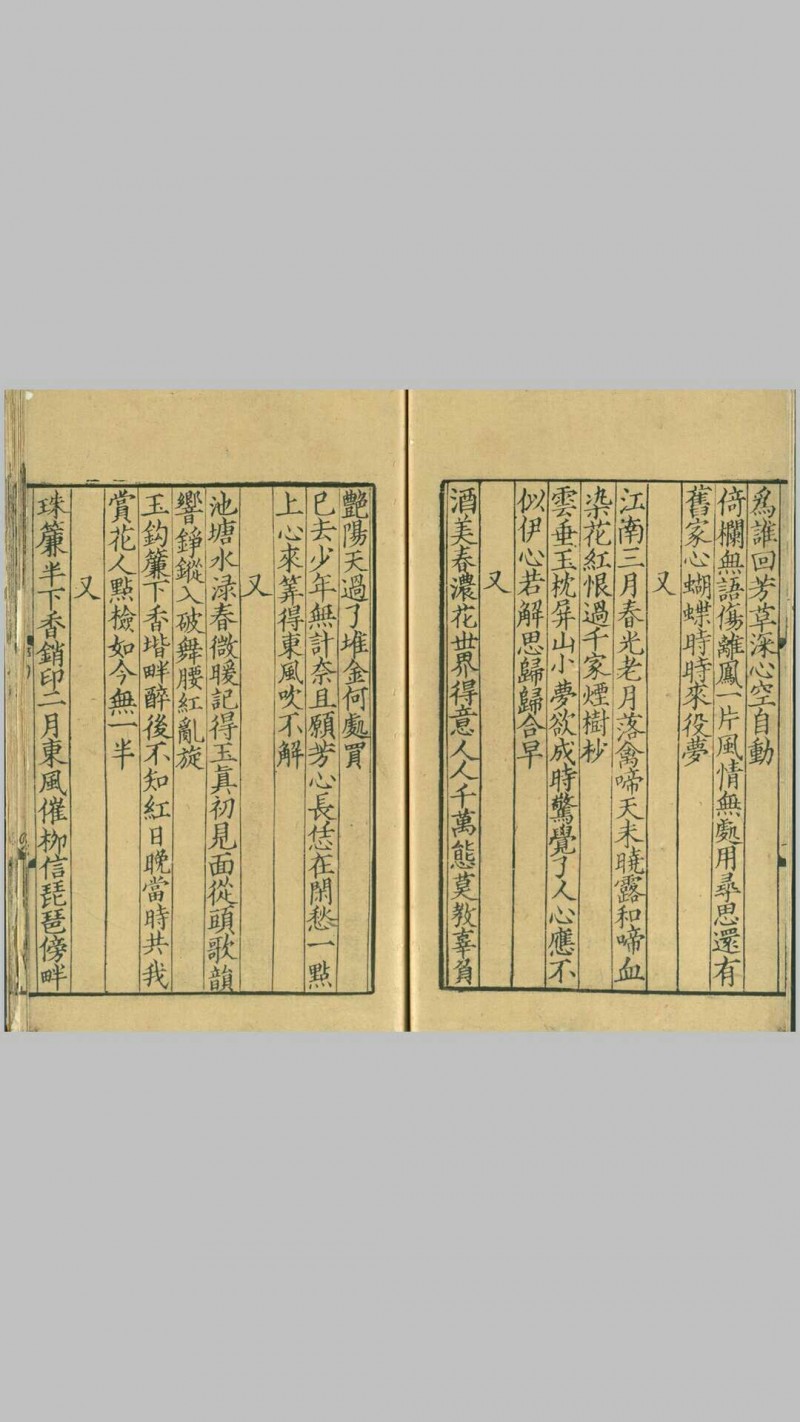 爲誰回芳草深心空自動
倚欄無語傷離鳳一片風情無處用尋思還有
舊家心蝴蝶時時來役夢
又
江南三月春光老月落禽啼天未曉露和啼血
染花紅恨過千家煙樹杪
雲垂玉枕屏山小夢欲成時驚覺了人心應不
似伊心若解思歸歸合早
又
酒美春濃花世界得意人人千萬態莫教辜負
艷陽天過了堆金何處買
已去少年無計奈且願芳心長恁在閑愁一點
上心來筭得東風吹不解
又
池塘水渌春微暖記得玉眞初見面從頭歌韻
響錚鏦入破舞腰紅亂旋
玉鈎簾下香堦畔醉後不知紅日晚當時共我
賞花人點檢如今無一半
又
珠簾半下香銷印二月東風催栁信琵琶傍畔